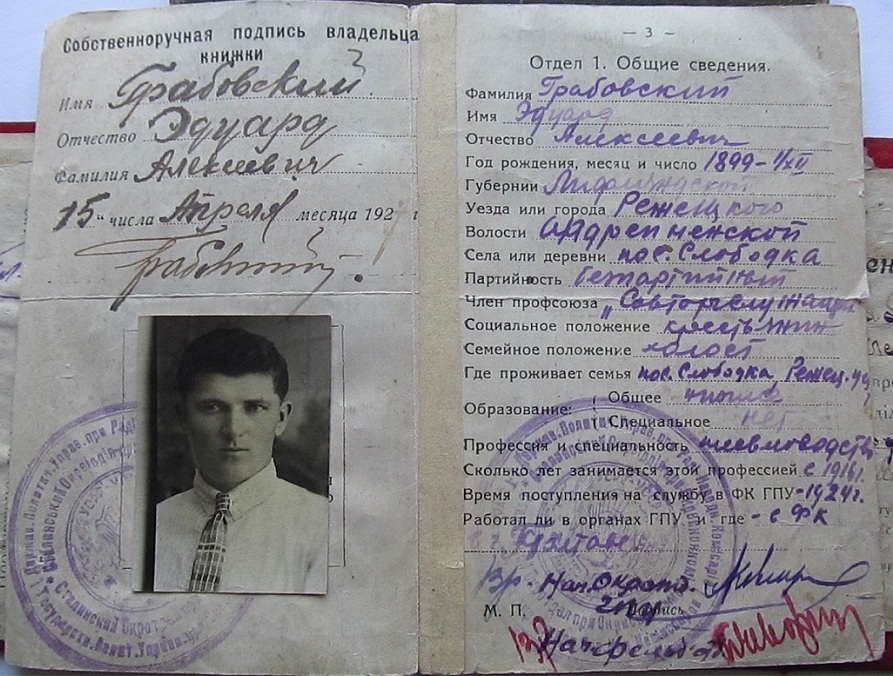 Собственноручная подпись владельца
книжки
Имя Грабовский
Отчество Эдуард
Фамилия Алексеевич
"15" числа Апреля месяца 192 г
Грабовский.
— 3 —
Отдел 1. Общие сведения.
Фамилия Грабовский
Имя Эдуард
Отчество Алексеевич
Год рождения, месяц и число 1899 - 1/XII
Губернии
Уезда или города Режецкого
Волости
Села или деревни пос. Слободка
Партийность Безпартийный
Член профсоюза "Совторгслужащих
Социальное положение крестьянин
Семейное положение холост
Где проживает семья пос. Слободка Режец. уез
Образование: Общее низшее
Специальное нет
Профессия и специальность
Сколько лет занимается этой профессией с 1916 г.
Время поступления на службу в ФК ГПУ - 1924 г.
Работал ли в органах ГПУ и где - в ФК
Вр. Нач. Окротд.
М. П. Подпись